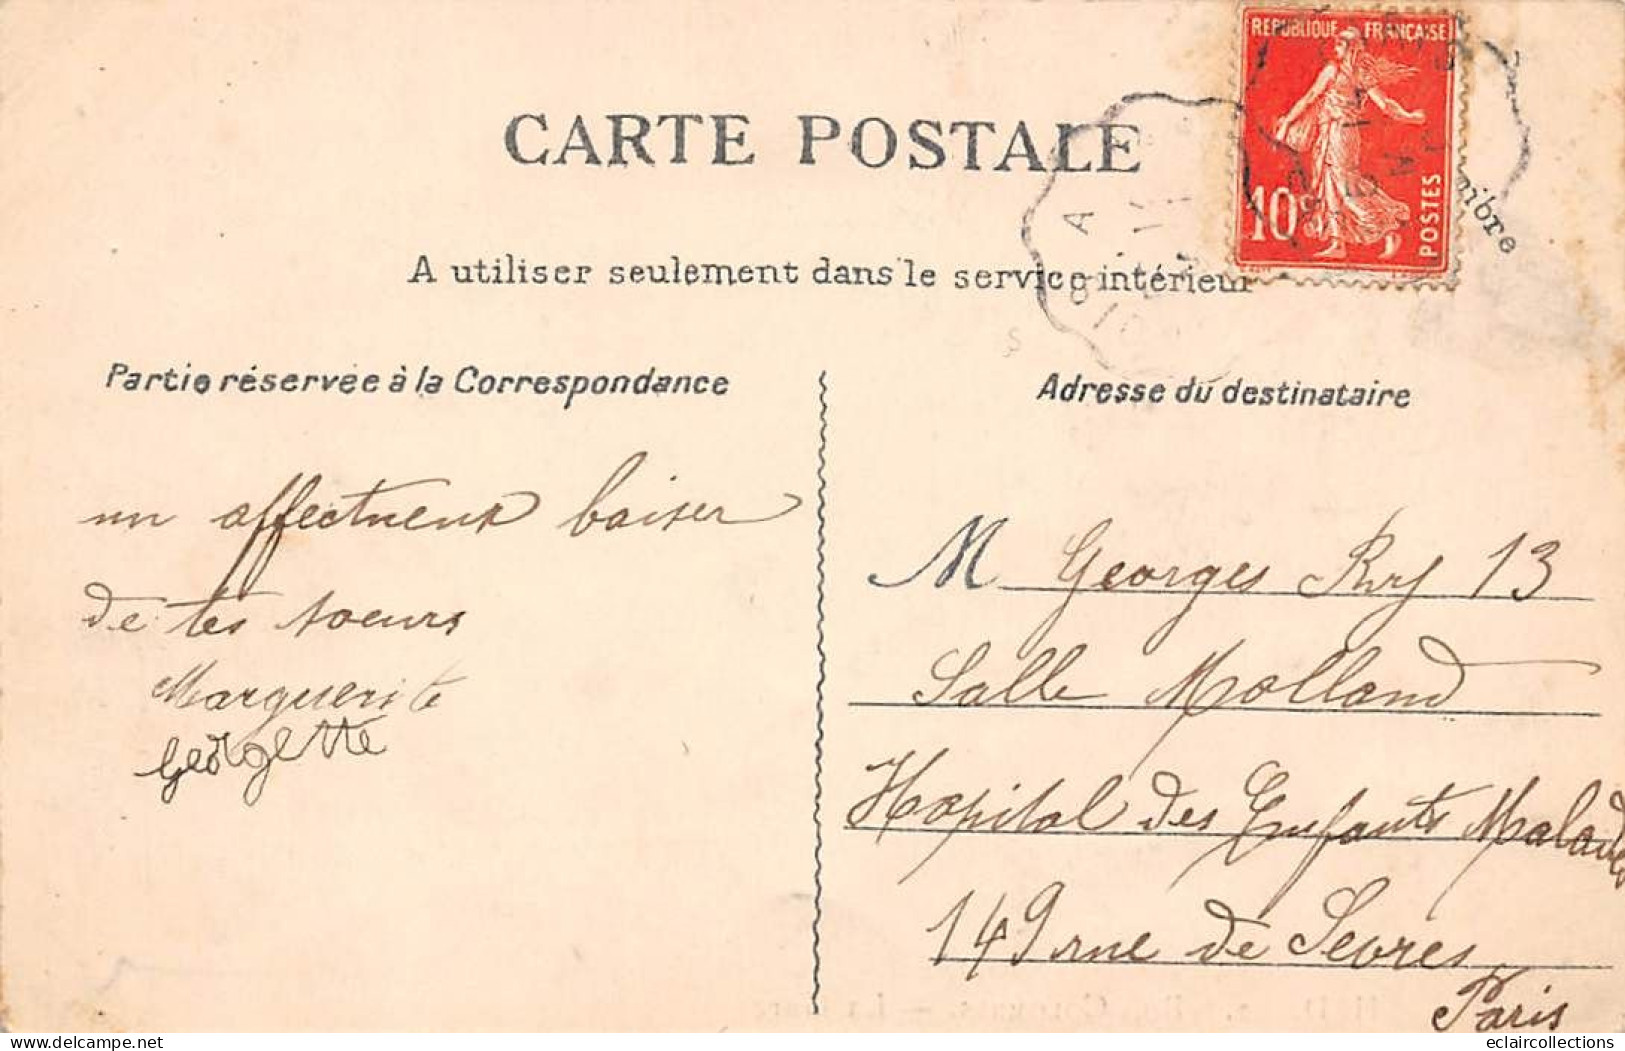 REPUBLIQUE FRANÇAISE
10c
POSTES
CARTE POSTALE
A utiliser seulement dans le service intérieur
Partie réservée à la Correspondance
un affectueux baiser
de tes soeurs
Marguerite
Georgette
Adresse du destinataire
M Georges 13
Salle Molland
Hopital des Enfants Malades
149 rue de Sevres
Paris
eclaircollections